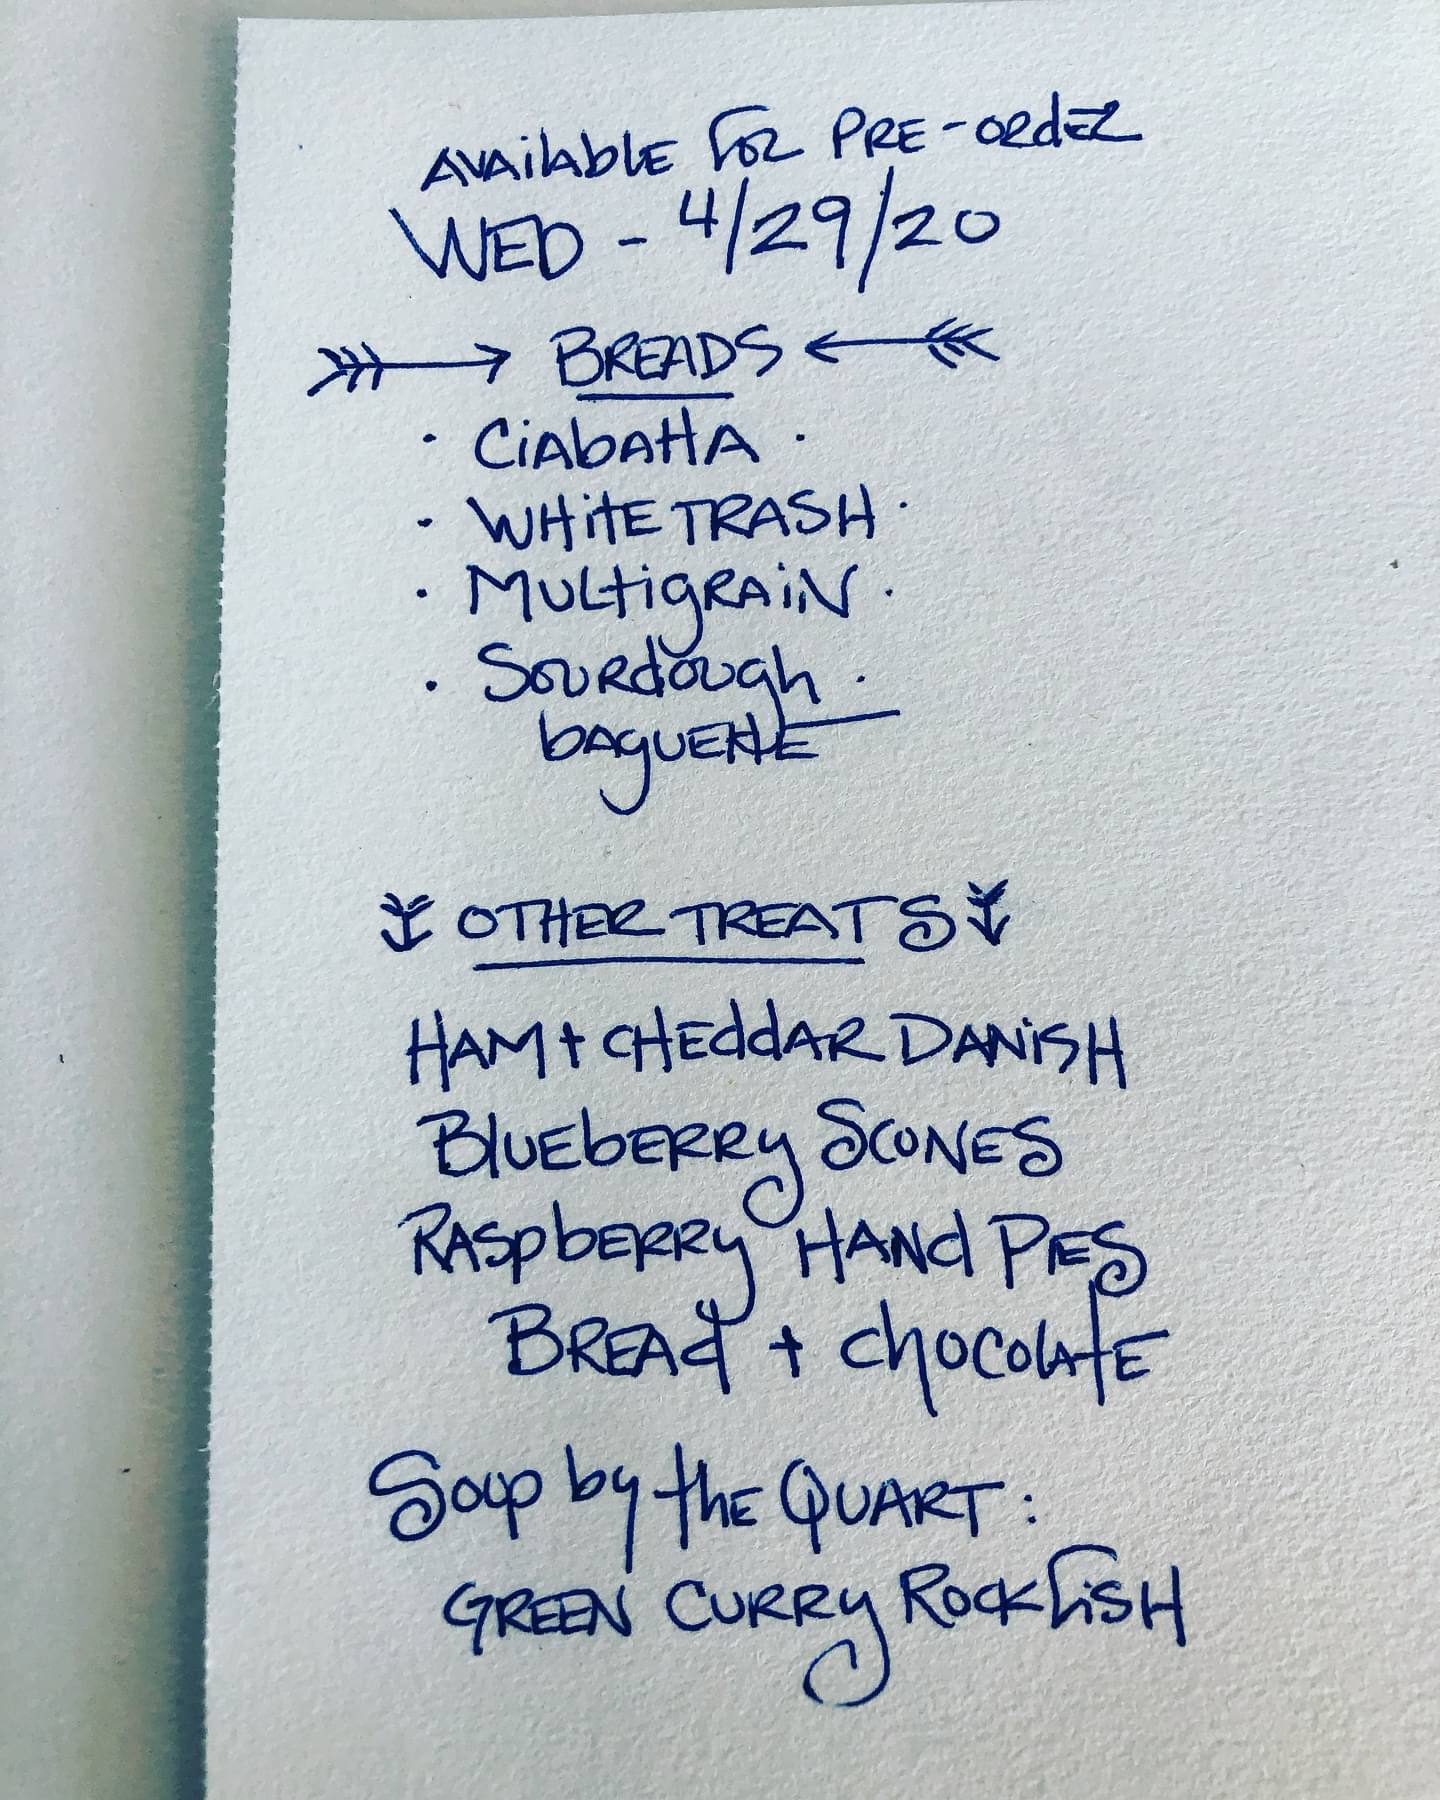 Available for Pre-order
WED - 4/29/20
BREADS
· Ciabatta ·
· WHITE TRASH ·
· Multigrain ·
· Sourdough ·
baguette
OTHER TREATS
HAM + CHEddAR DANISH
Blueberry Scones
Raspberry Hand Pies
Bread + chocolate
Soup by the Quart:
GREEN CURRY ROCKfiSH